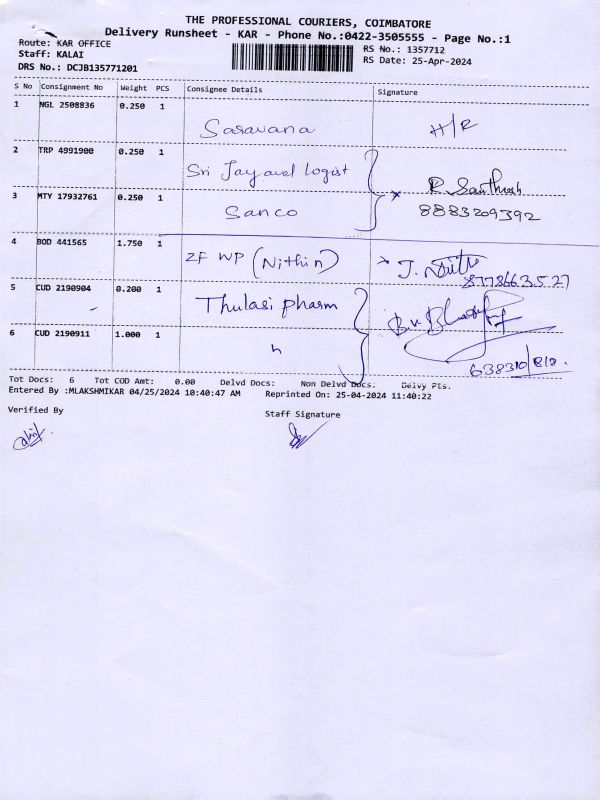 THE PROFESSIONAL COURIERS, COIMBATORE
Delivery Runsheet - KAR - Phone No.:0422-3505555 - Page No.:1
Route: KAR OFFICE
RS No.: 1357712
Staff: KALAI
RS Date: 25-Apr-2024
DRS No.: DCJB135771201
S No Consignment No Weight PCS Consignee Details Signature
1 NGL 2508836 0.250 1
Saravana H/R
2 TRP 4991900 0.250 1
Sri Jayavel Logist R. Santhosh
3 MTY 17932761 0.250 1
Sanco 8883209392
4 BOD 441565 1.750 1
ZF WP (Nithin) J.
5 CUD 2190904 0.200 1
Thulasi pharm
6 CUD 2190911 1.000 1
Tot Docs: 6 Tot COD Amt: 0.00 Delvd Docs: Non Delvd Docs: Delvy Pts.
Entered By :MLAKSHMIKAR 04/25/2024 10:40:47 AM Reprinted On: 25-04-2024 11:40:22
Verified By
Staff Signature